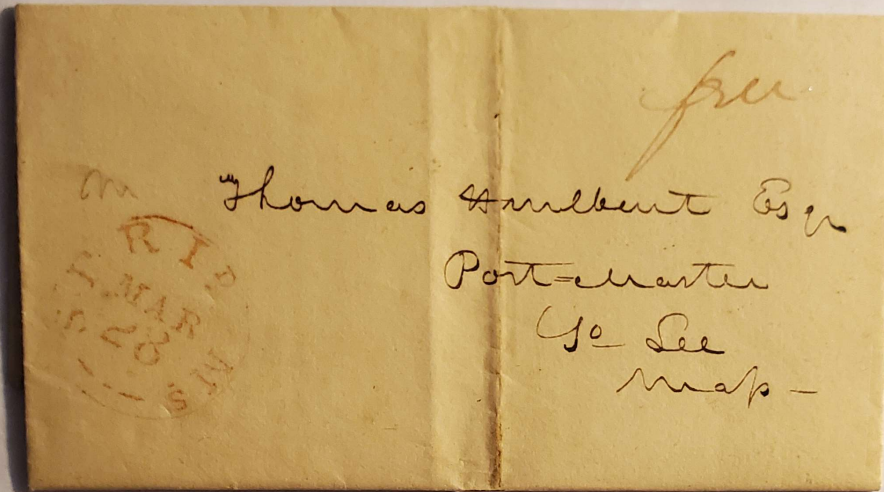 free
Thomas Hurlbut Esqr
Post=Master
So Lee
Mass -
MAR
28